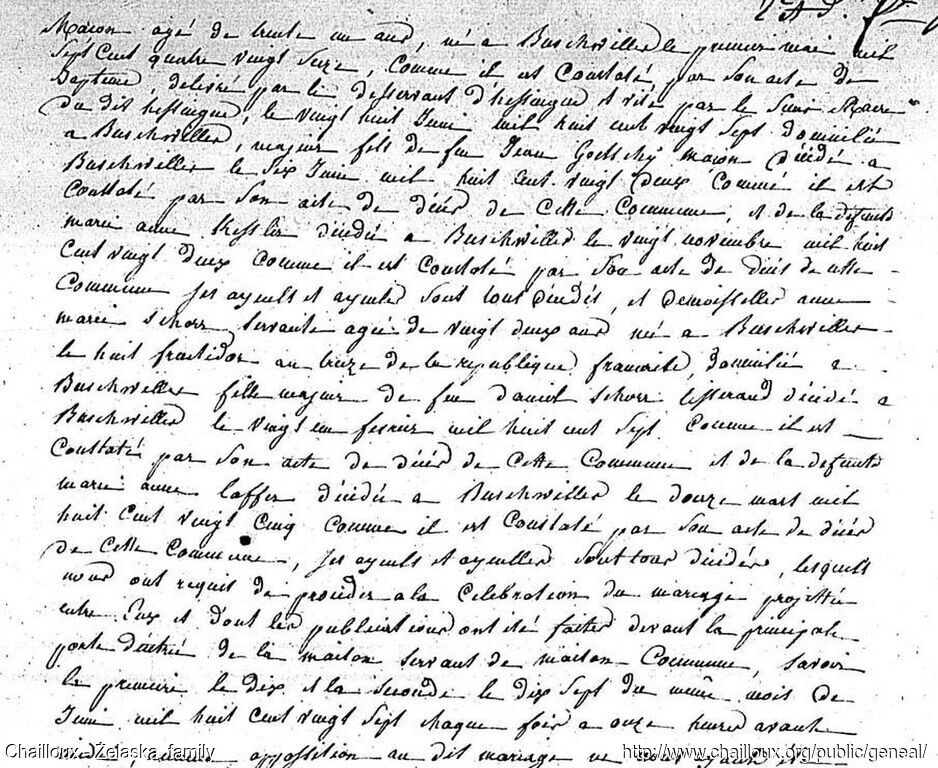 Macon agé de trente un ans, né a Buschwiller le premier mai mil
Sept Cent quatre vingt Seize, Comme il est Constaté par Son acte de
Bapteme, delivré par le desservant d'hessingue et visé par le Sieur Maire
du dit hessingue, le vingt huit Juin mil huit cent vingt Sept domicilié
a Buschwiller, majeur fils de feu Jean Goetschÿ macon décédé a
Buschwiller le Six Juin mil huit Cent vingt deux Comme il est
Constaté par Son acte de décés de Cette Commune, et de la defunte
marie anne Kessler décédée a Buschwiller le vingt novembre mil huit
Cent vingt deux Comme il est Constaté par Son acte de décés de cette
Commune Ses ayeuls et ayeules Sont tous décédés, et demoiselle anne
marie Schorr Servante agée de vingt deux ans née a Buschwiller
le huit fructidor an treize de la republique francaise, domiciliée a
Buschwiller fille majeure de feu daniel Schorr tisserand décédé a
Buschwiller le vingt un fevrier mil huit cent Sept Comme il est
Constaté par Son acte de décés de Cette Commune et de la defunte
marie anne Laffer décédée a Buschwiller le douze mars mil
huit Cent vingt Cinq Comme il est Constaté par Son acte de décés
de Cette Commune, Ses ayeuls et ayeulles Sont tous décédés, lesquels
nous ont requis de proceder a la Celebration du mariage projetté
entre Eux et dont les publications ont été faites devant la principale
porte d'entrée de la maison Servant de maison Commune, Savoir
la premiere le dix et la Seconde le dix Sept du même mois de
Juin mil huit Cent vingt Sept chaque fois a onze heures avant
midi, aucune opposition au dit mariage ne
Chailloux - Zelaska family
http://www.chailloux.org/public/geneal/